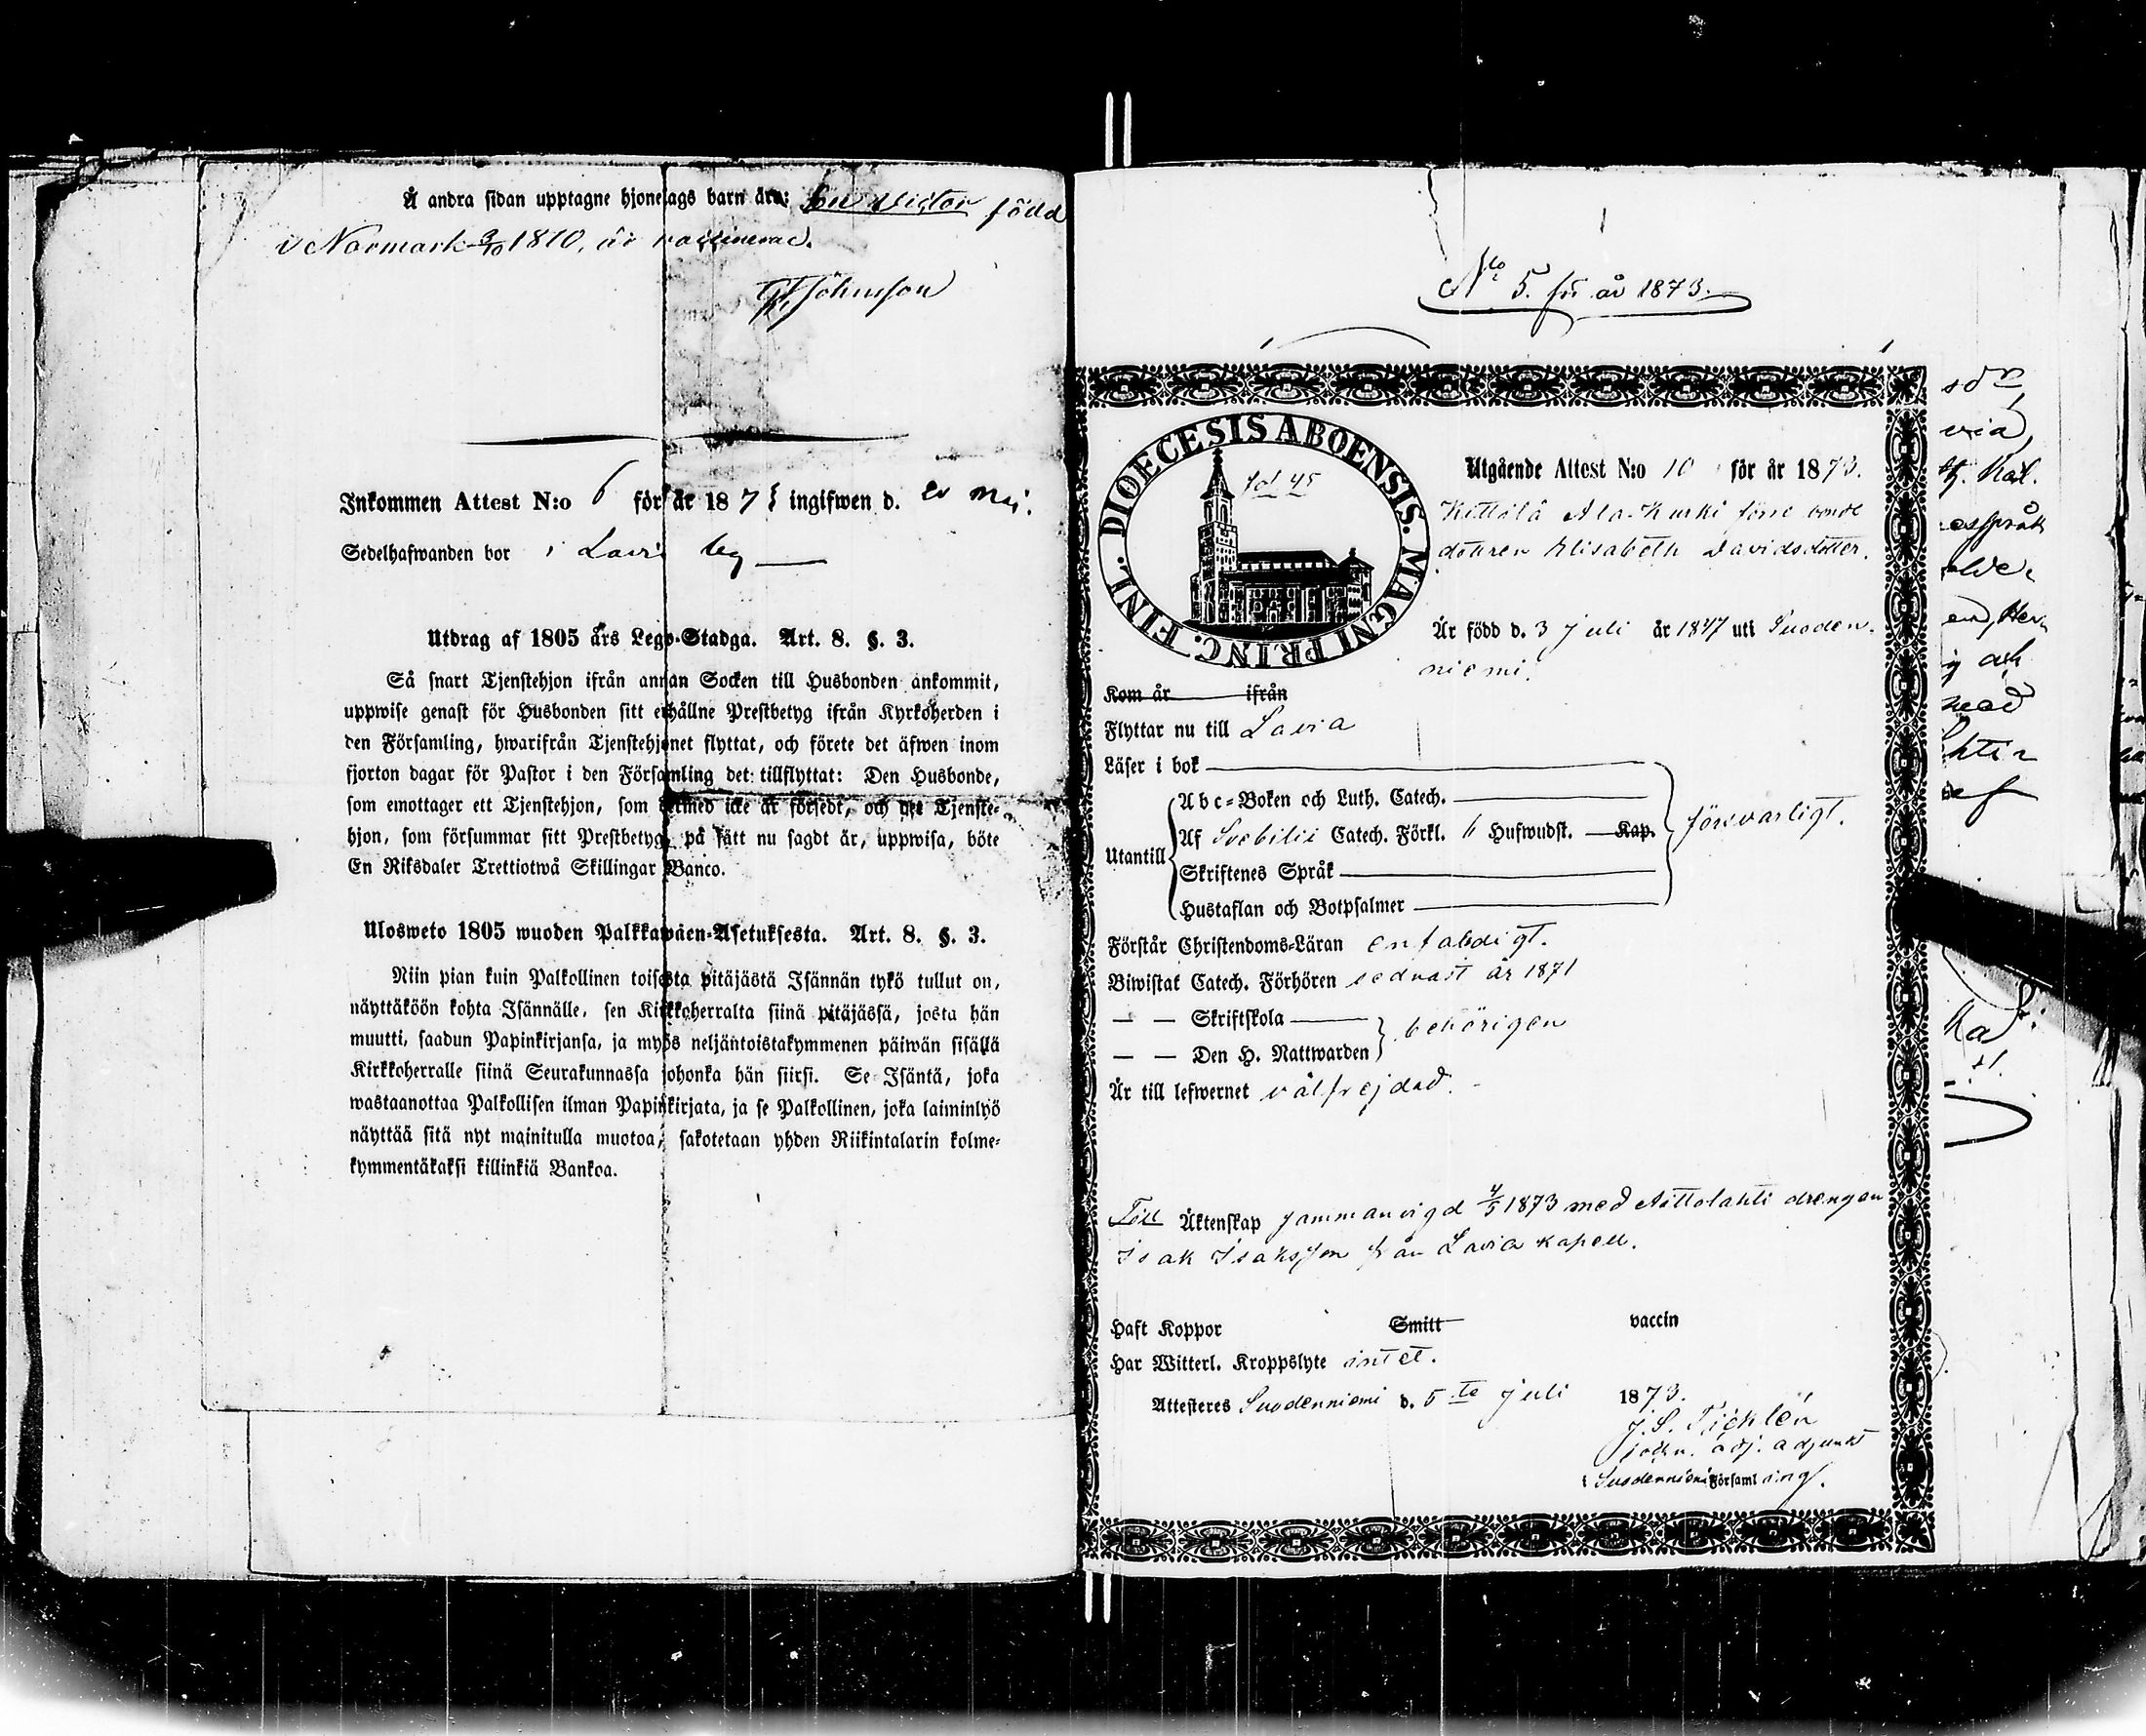 Å andra sidan upptagne hjonelags barn äro: Victor född
i Normark 3/10 1870, är vaccinerad.
Inkommen Attest N:o 6 för år 187 ingifwen d. maj.
Sedelhafwanden bor i Lavia by
Utdrag af 1805 års Lego-Stadga. Art. 8. §. 3.
Så snart Tjenstehjon ifrån annan Socken till Husbonden ankommit,
uppwise genast för Husbonden sitt erhållne Prestbetyg ifrån Kyrkoherden i
den Församling, hwarifrån Tjenstehjonet flyttat, och förete det äfwen inom
fjorton dagar för Pastor i den Församling det tillflyttat: Den Husbonde,
som emottager ett Tjenstehjon, som dermed icke är försedt, och det Tjenste-
hjon, som försummar sitt Prestbetyg, på sätt nu sagdt är, uppwisa, böte
En Riksdaler Trettiotwå Skillingar Banco.
Ulosweto 1805 wuoden Palkkawäen-Asetuksesta. Art. 8. §. 3.
Niin pian kuin Palkollinen toisesta pitäjästä Isännän tykö tullut on,
näyttäköön kohta Isännälle, sen Kirkkoherralta siinä pitäjässä, josta hän
muutti, saadun Papinkirjansa, ja myös neljäntoistakymmenen päiwän sisällä
Kirkkoherralle siinä Seurakunnassa johonka hän siirsi. Se Isäntä, joka
wastaanottaa Palkollisen ilman Papinkirjata, ja se Palkollinen, joka laiminlyö
näyttää sitä nyt mainitulla muotoa, sakotetaan yhden Riikintalarin kolme-
kymmentäkaksi killinkiä Bankoa.
No 5. för år 1873.
DIOECESIS ABOENSIS. MAGNI PRINC. FINL.
fol 45
Utgående Attest N:o 10 för år 1873.
Kittilä Ala-Kurki förre bonde
dottren Elisabeth Davidsdotter.
Är född d. 3 Juli år 1847 uti Suoden-
niemi.
Kom år ifrån
Flyttar nu till Lavia
Läser i bok
Utantill
Abc-Boken och Luth. Catech.
Af Svebilii Catech. Förkl. 6 Hufwudst. Kap.
försvarligt.
Skriftenes Språk
Hustaflan och Botpsalmer
Förstår Christendoms-Läran enfaldigt.
Biwistat Catech. Förhören sednast år 1871
— — Skriftskola
behörigen
— — Den H. Nattwarden
Är till lefwernet välfrejdad.
Till Äktenskap sammanvigd 4/5 1873 med Aittolahti drengen
Isak Isaksson från Lavia kapell.
Haft Koppor Smitt vaccin
Har Witterl. Kroppslyte intet.
Attesteres Suodenniemi d. 5te Juli 1873.
J. S.
adj. adjunkt
i Suodenniemi Församling.